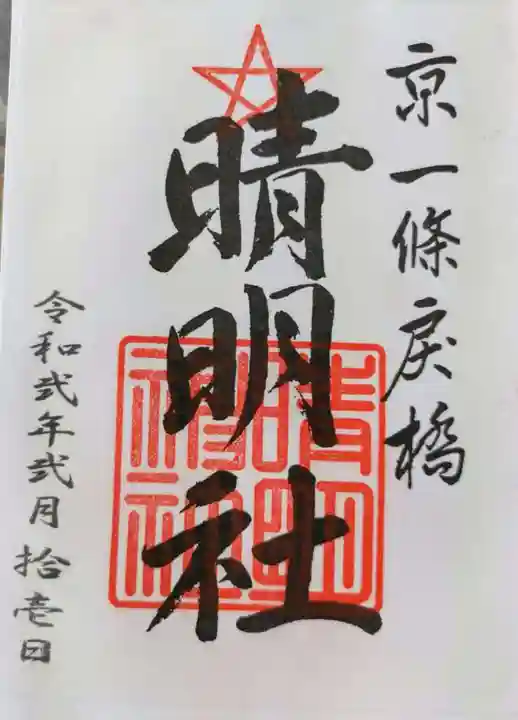 京一條戻橋
晴明社
令和弐年弐月拾壱日